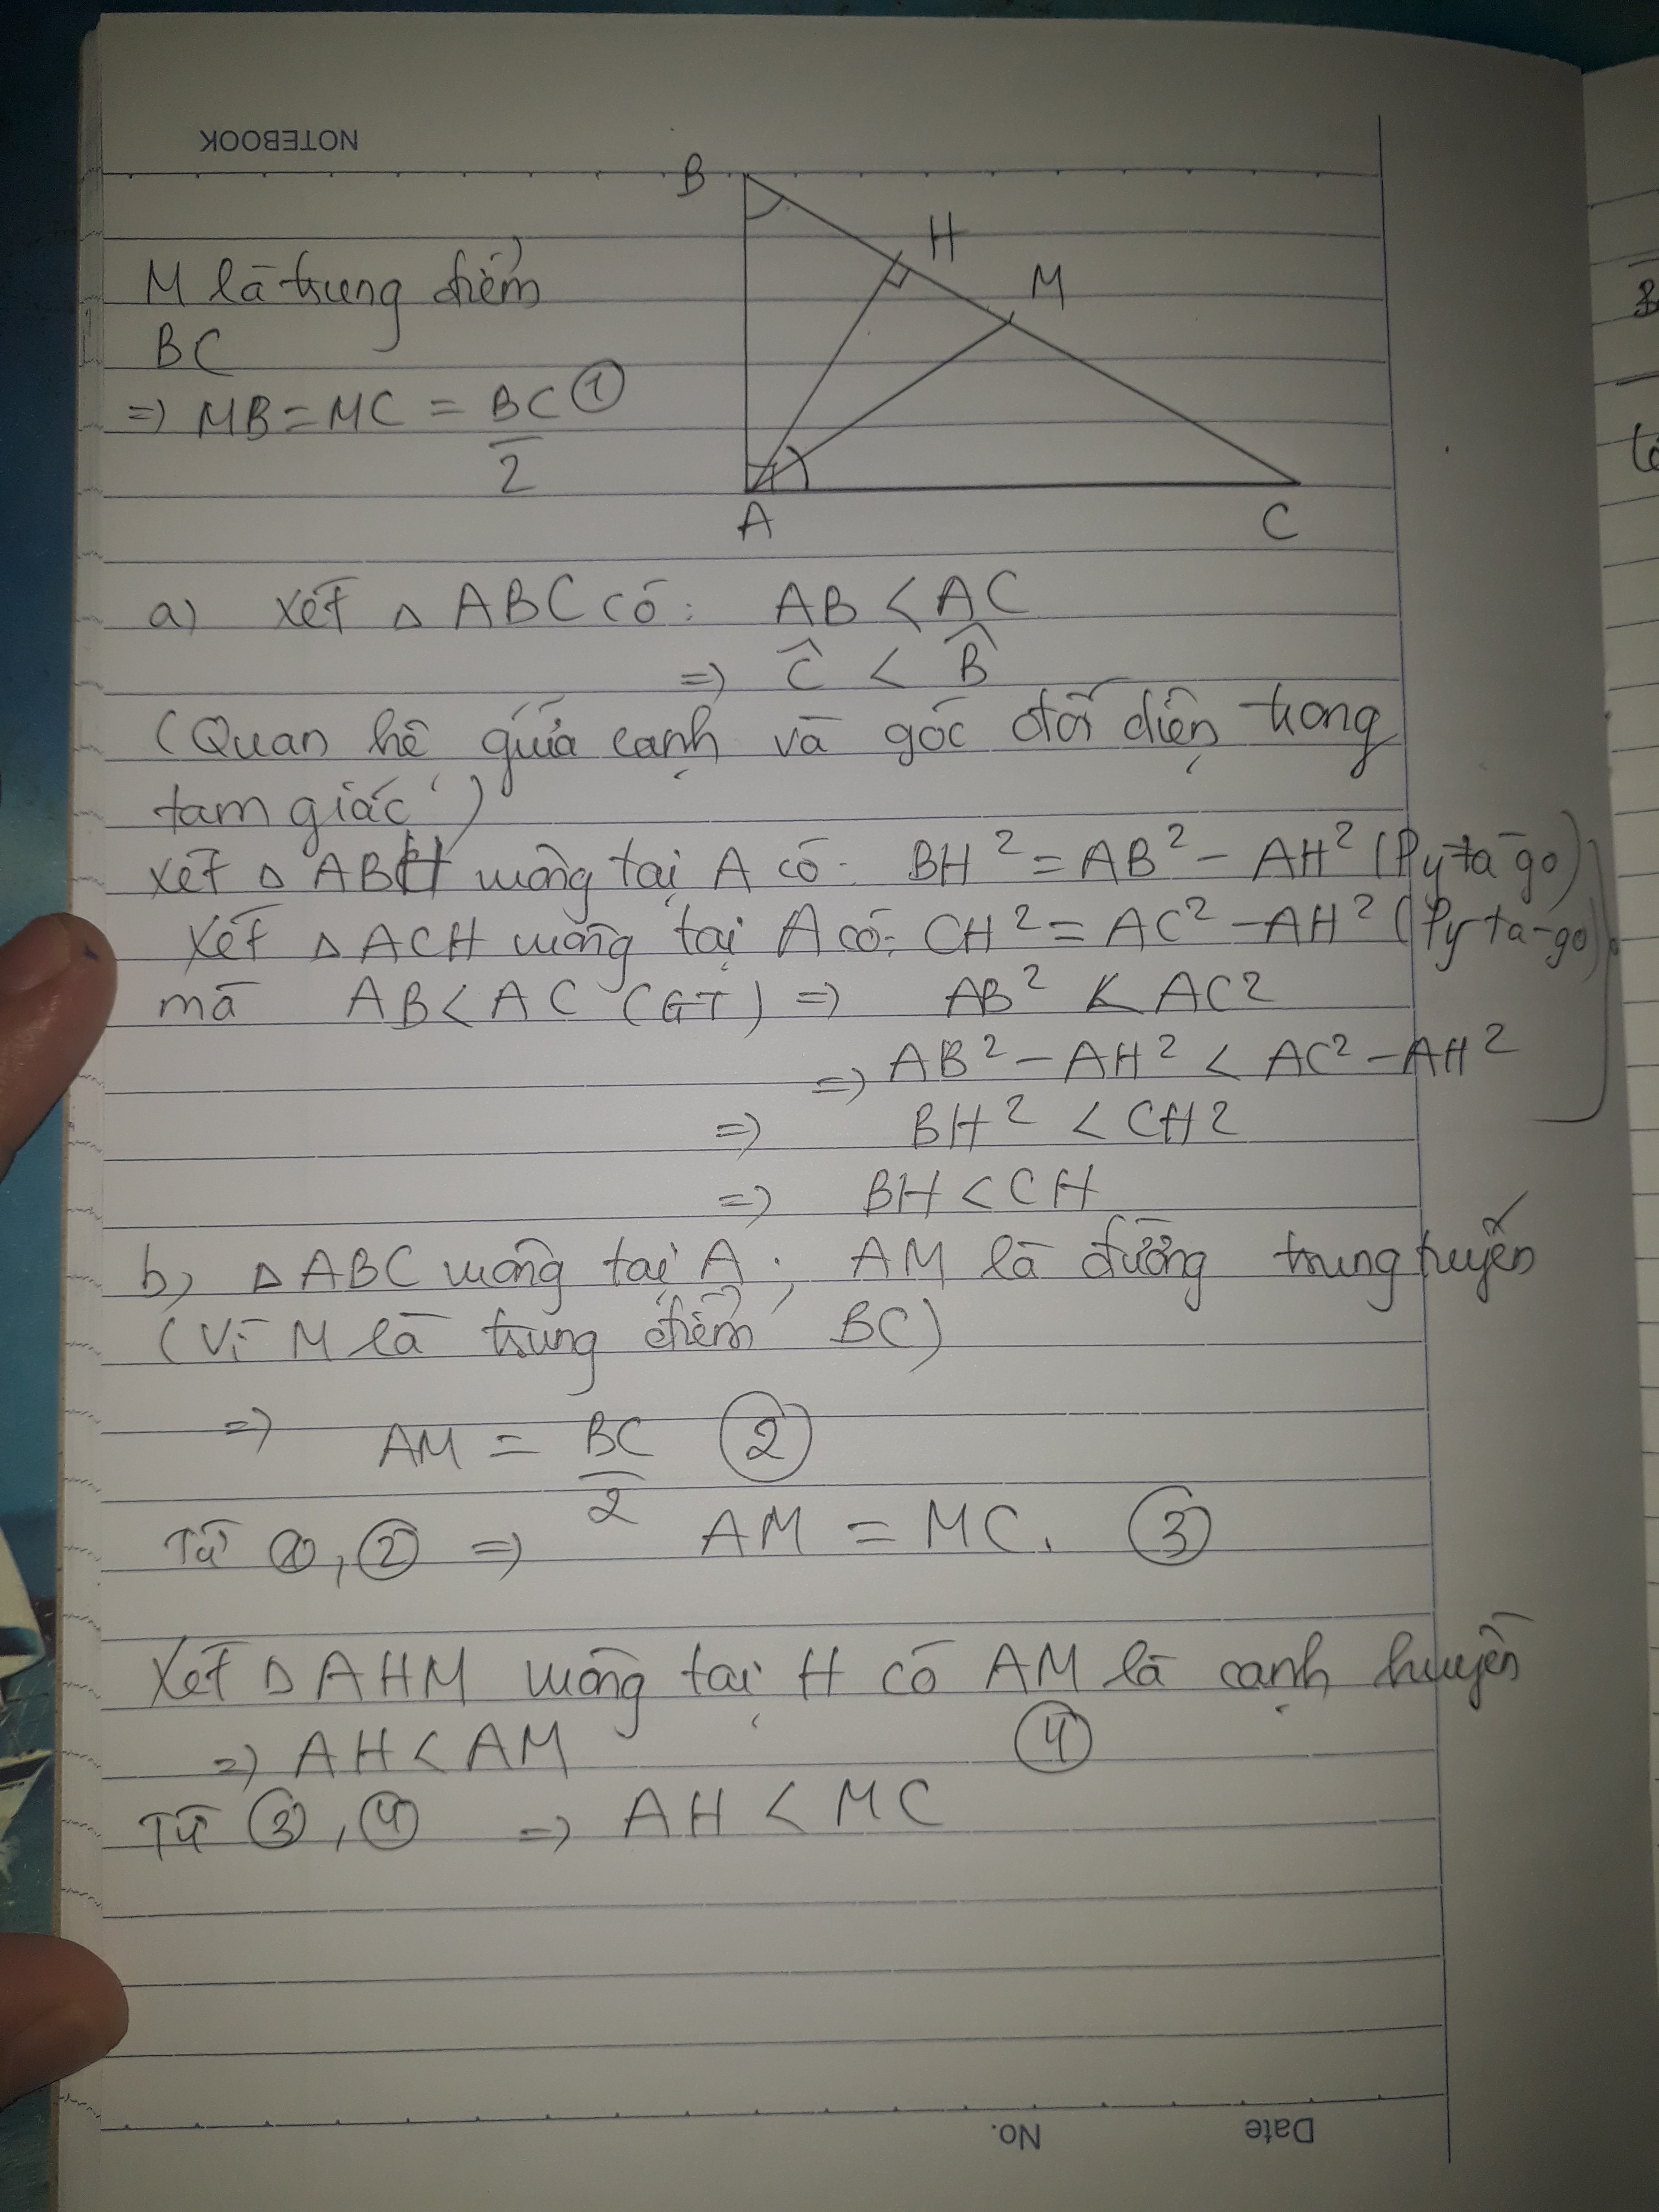 NOTEBOOK
B
H
M
A
C
M là trung điểm
BC
=> MB = MC = BC/2 ①
a) Xét △ ABC có: AB < AC
=> Ĉ < B̂
(Quan hệ giữa cạnh và góc đối diện trong
tam giác)
Xét △ ABH vuông tại A có: BH² = AB² - AH² (Py ta go)
Xét △ ACH vuông tại A có: CH² = AC² - AH² (Py ta-go)
mà AB < AC (GT) => AB² < AC²
=> AB² - AH² < AC² - AH²
=> BH² < CH²
=> BH < CH
b) △ ABC vuông tại A; AM là đường trung tuyến
(Vì M là trung điểm BC)
=> AM = BC/2 ②
Từ ①, ② => AM = MC. ③
Xét △ AHM vuông tại H có AM là cạnh huyền
=> AH < AM ④
Từ ③, ④ => AH < MC
No.
Date